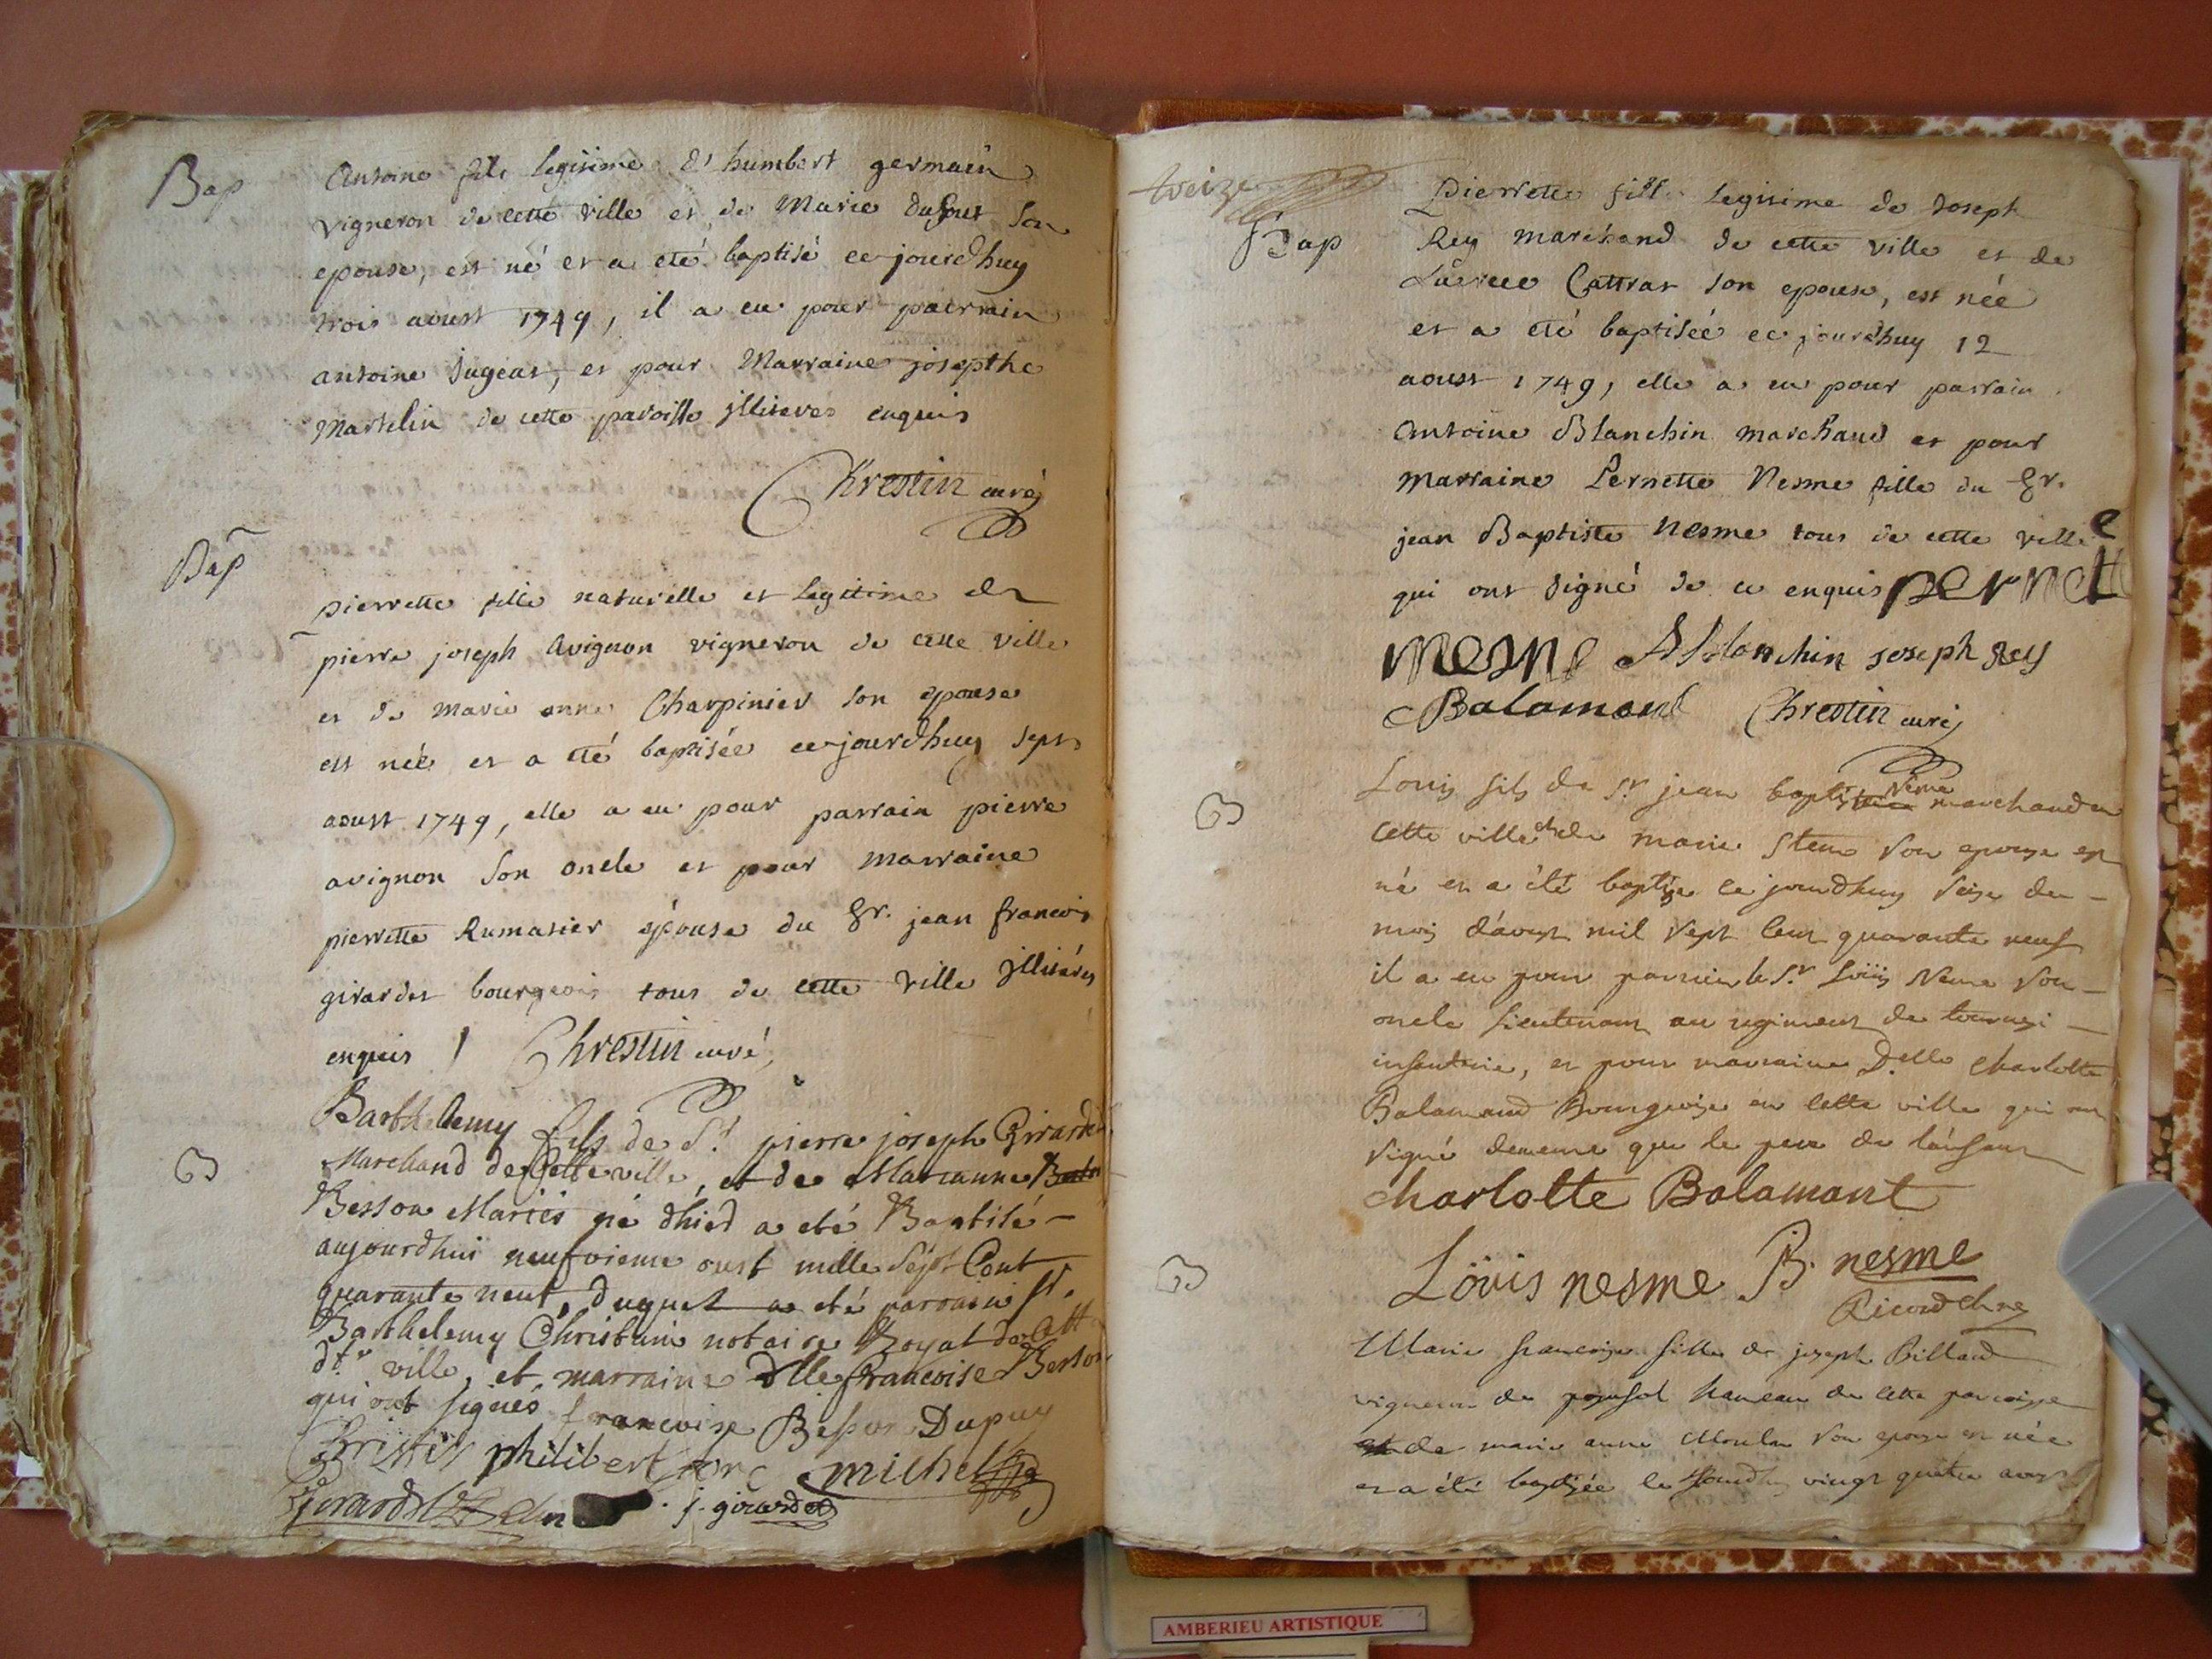 Bap
Antoine fils legitime d'humbert germain
vigneron de cette ville et de Marie dufour son
epouse, est né et a eté baptisé ce jourdhuy
trois aoust 1749, il a eu pour parrain
antoine Jugeat, et pour Marraine josepthe
Martelin de cette paroisse jlliteres enquis
Chrestin curé
Bap
pierrette fille naturelle et legitime de
pierre joseph Avignon vigneron de cette ville
et de marie anne Charpinier son epouse
est née et a eté baptisée ce jourdhuy sept
aoust 1749, elle a eu pour parrain pierre
avignon son oncle et pour marraine
pierrette Rumasier épouse du Sr. jean francois
girardet bourgeois tous de cette ville jlliterés
enquis Chrestin curé
B
Barthelemy fils de Sr. pierre joseph Girardet
Marchand de Cette ville, et de Marianne
Besson Mariés né dhier a eté Baptisé
aujourdhui neufvieme oust mille Sept Cent
quarante neuf, duquel a eté parrain Sr.
Barthelemy Christin notaire Royal de
dte ville, et marraine dlle francoise Besson
qui ont signés francoise Besson Dupuy
Christin philibert michel
Girardet j. girardet
treize
Bap
Pierrette fille legitime de Joseph
Rey marchand de cette ville et de
Lucrece Cattras son epouse, est née
et a eté baptisée ce jourdhuy 12
aoust 1749, elle a eu pour parrain
Antoine Blanchin marchand et pour
marraine Pernette Nesme fille du Sr.
jean Baptiste nesme tous de cette ville
qui ont signé de ce enquis pernette
nesme A Blanchin joseph Rey
Balamand Chrestin curé
B
Louis fils de Sr. jean baptiste Neme marchand en
cette ville et de marie Steue son epouse est
né et a été baptise ce jourdhuy seise du
mois d'aoust mil sept cent quarante neuf
il a eu pour parrain le Sr. Loüis Neme son
oncle lieutenant au regiment de tournesi
infanterie, et pour marraine D.elle Charlotte
Balamand Bourgeoise en cette ville qui ont
signé dememe que le pere de l'énfant
charlotte Balamant
Loüis nesme B. nesme
Ricord
B
Marie francoise fille de joseph Billand
vigneron de hameau de cette paroisse
et de marie anne Moulin son epouse est née
et a été baptisée ce jourdhuy vingt quatre aoust
AMBERIEU ARTISTIQUE